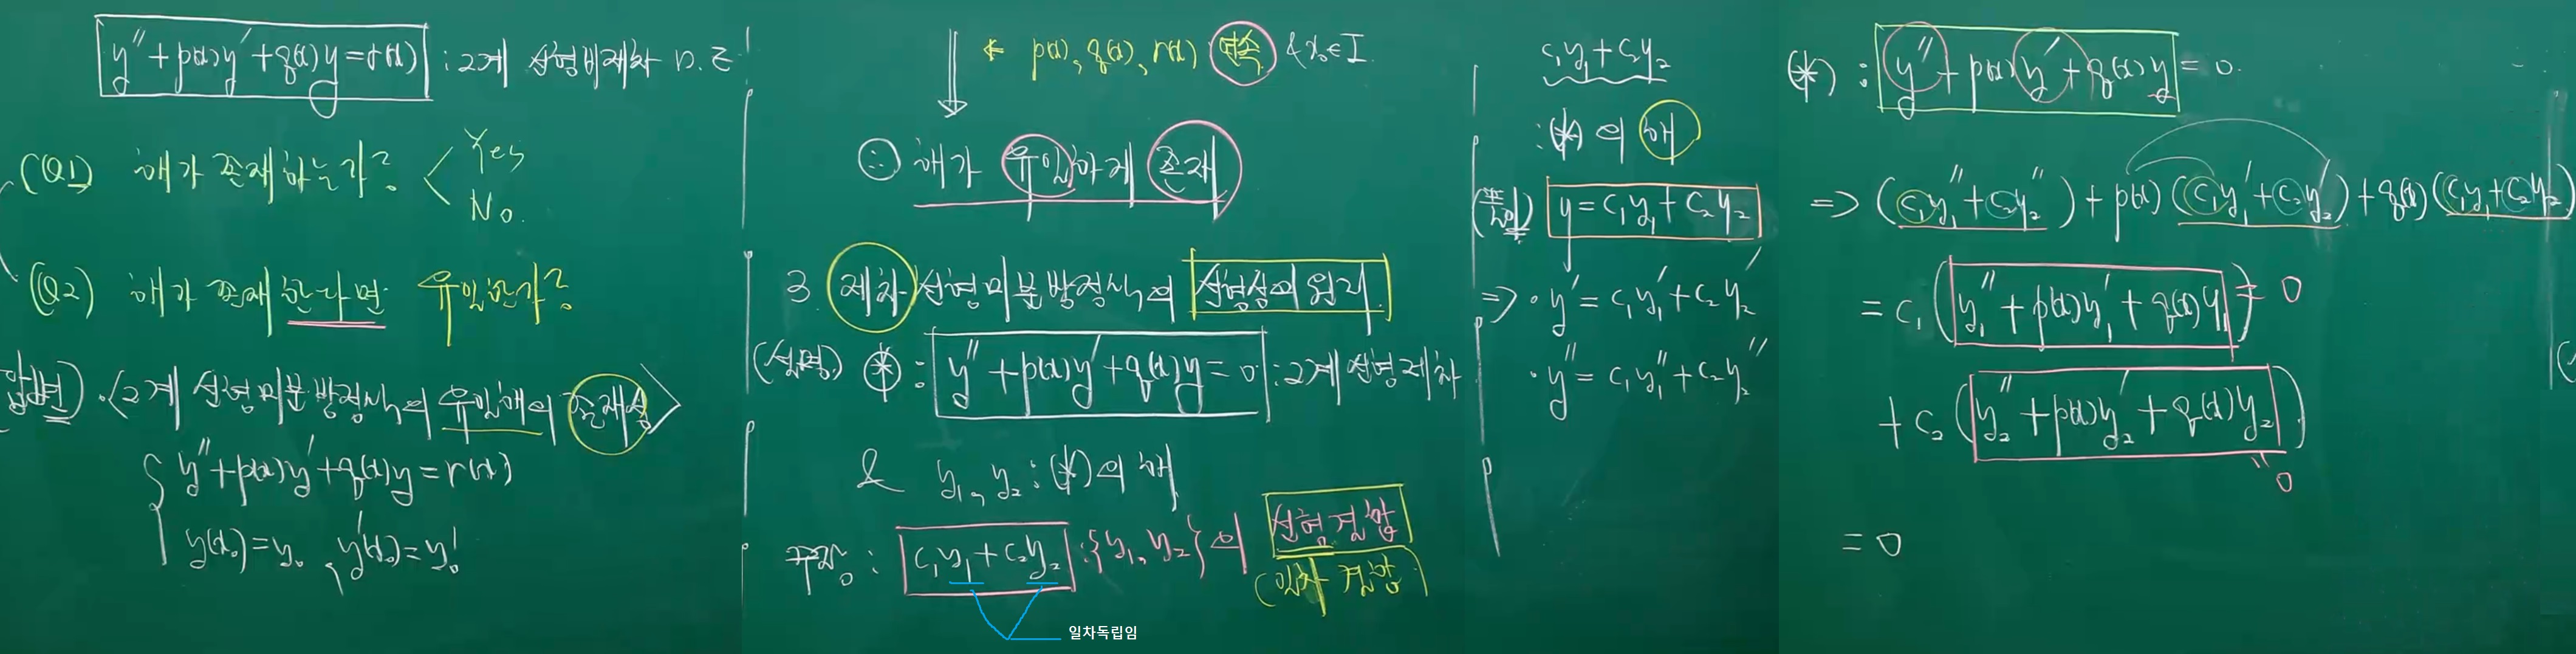 y″ + p(x)y′ + q(x)y = r(x) : 2계 선형미분방정식 D.E
(Q1) 해가 존재하는가? < Yes
No.
(Q2) 해가 존재한다면 유일한가?
<2계 선형미분방정식의 유일해의 존재성>
y″ + p(x)y′ + q(x)y = r(x)
y(x₀) = y₀, y′(x₀) = y₀′
← p(x), q(x), r(x) 연속 & x₀∈I.
∴ 해가 유일하게 존재
3 제차 선형미분방정식의 선형성의 원리
(설명) (*) : y″ + p(x)y′ + q(x)y = 0 : 2계 선형제차
& y₁, y₂ : (*)의 해
주장 : c₁y₁ + c₂y₂ : {y₁, y₂}의 선형결합
(일차결합)
일차독립임
c₁y₁ + c₂y₂
: (*)의 해
y = c₁y₁ + c₂y₂
⇒ · y′ = c₁y₁′ + c₂y₂′
· y″ = c₁y₁″ + c₂y₂″
(*) : y″ + p(x)y′ + q(x)y = 0.
⇒ (c₁y₁″ + c₂y₂″) + p(x)(c₁y₁′ + c₂y₂′) + q(x)(c₁y₁ + c₂y₂)
= c₁(y₁″ + p(x)y₁′ + q(x)y₁) = 0
+ c₂(y₂″ + p(x)y₂′ + q(x)y₂)
" 0
= 0